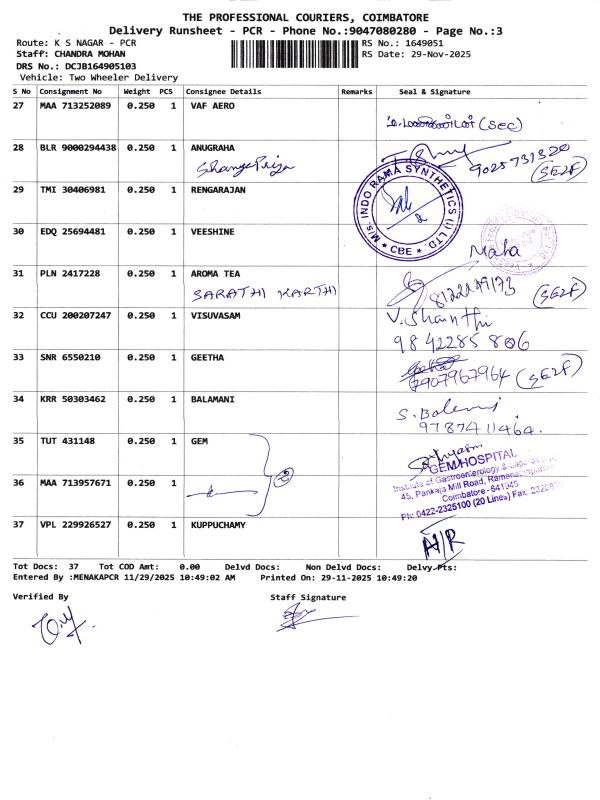 THE PROFESSIONAL COURIERS, COIMBATORE
Delivery Runsheet - PCR - Phone No.:9047080280 - Page No.:3
Route: K S NAGAR - PCR
RS No.: 1649051
Staff: CHANDRA MOHAN
RS Date: 29-Nov-2025
DRS No.: DCJB164905103
Vehicle: Two Wheeler Delivery
S No Consignment No Weight PCS Consignee Details Remarks Seal & Signature
27 MAA 713252089 0.250 1 VAF AERO
(Sec)
28 BLR 9000294438 0.250 1 ANUGRAHA
9025731320
(SE2F)
29 TMI 30406981 0.250 1 RENGARAJAN
M/s. INDO RAMA SYNTHETICS (I) LTD.
* CBE *
30 EDQ 25694481 0.250 1 VEESHINE
Maha
31 PLN 2417228 0.250 1 AROMA TEA
SARATHI KARTHI
(SE2F)
32 CCU 200207247 0.250 1 VISUVASAM
V. Shanthi
9842285806
33 SNR 6550210 0.250 1 GEETHA
7907967964 (SE2F)
34 KRR 50303462 0.250 1 BALAMANI
S. Balamani
9787411464.
35 TUT 431148 0.250 1 GEM
GEM HOSPITAL
Institute of Gastroenterology &
45, Pankaja Mill Road, Ramanathapuram
Coimbatore - 641045
Ph: 0422-2325100 (20 Lines) Fax:
36 MAA 713957671 0.250 1
37 VPL 229926527 0.250 1 KUPPUCHAMY
N/R
Tot Docs: 37 Tot COD Amt: 0.00 Delvd Docs: Non Delvd Docs: Delvy Pts:
Entered By :MENAKAPCR 11/29/2025 10:49:02 AM Printed On: 29-11-2025 10:49:20
Verified By Staff Signature